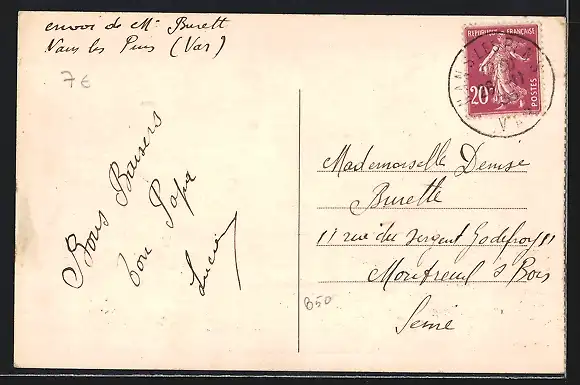 envoi de Mr Burett
Nans les Pins (Var)
7€
Bons Baisers
ton Papa
Lucien
REPUBLIQUE FRANÇAISE
20c
POSTES
NANS LES PINS
VAR
Mademoiselle Denise
Burette
11 rue du Sergent Godefroy 11
Montreuil s Bois
Seine
850